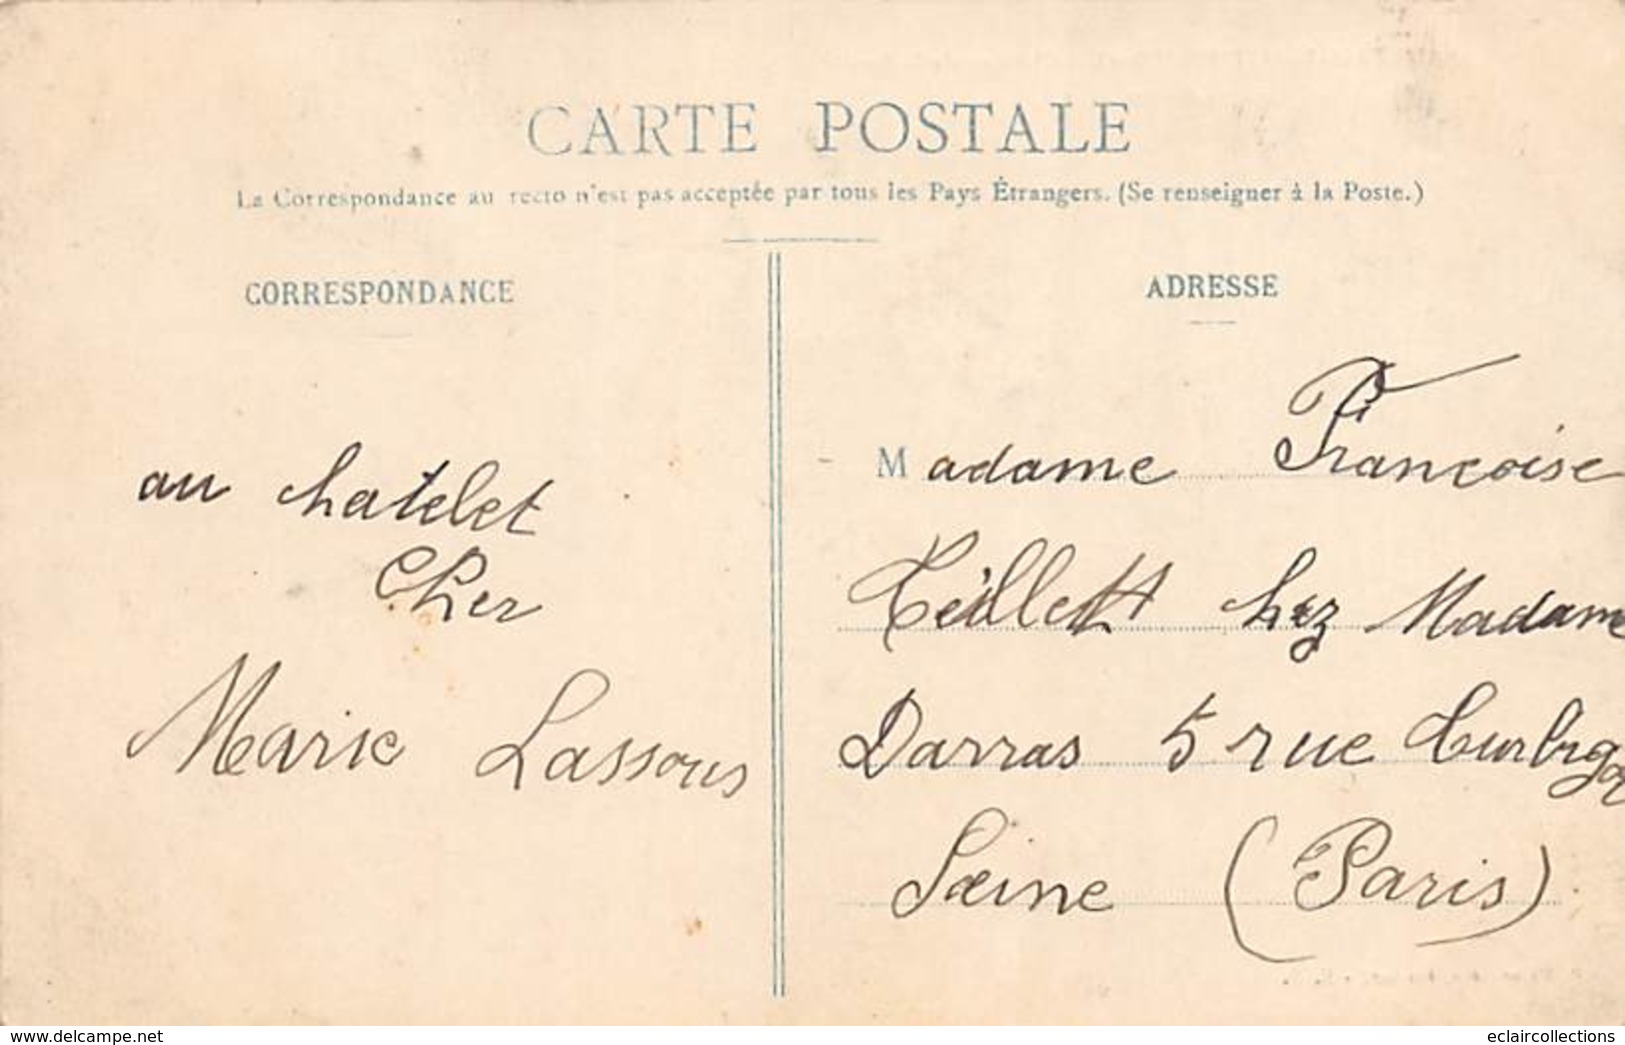 CARTE POSTALE
La Correspondance au recto n'est pas acceptée par tous les Pays Étrangers. (Se renseigner à la Poste.)
CORRESPONDANCE
au chatelet
Cher
Marie Lassous
ADRESSE
Madame Francoise
Teillett hez Madame
Darras 5 rue Turbigo
Seine (Paris)
www.delcampe.net
eclaircollections